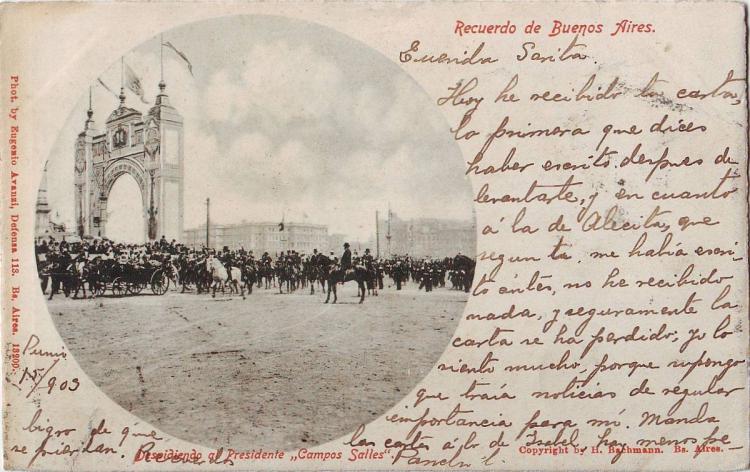 Recuerdo de Buenos Aires.
Querida Sarita.
Hoy he recibido tu carta,
la primera que dices
haber escrito despues de
levantarte, y en cuanto
á la de Alicita, que
segun tu me había escri-
to ántes, no he recibido
nada, y seguramente la
carta se ha perdido; Yo lo
siento mucho, porque supongo
que traía noticias de regular
importancia para mí. Manda
las cartas á lo de Isabel, hay menos pe-
ligro de que
se pierdan. Recuerdos
Junio
15/903
Despidiendo al Presidente „Campos Salles"
Copyright by H. Bachmann. Bs. Aires.
Phot. by Eugenio Avanzi, Defensa 113. Bs. Aires. 13200.